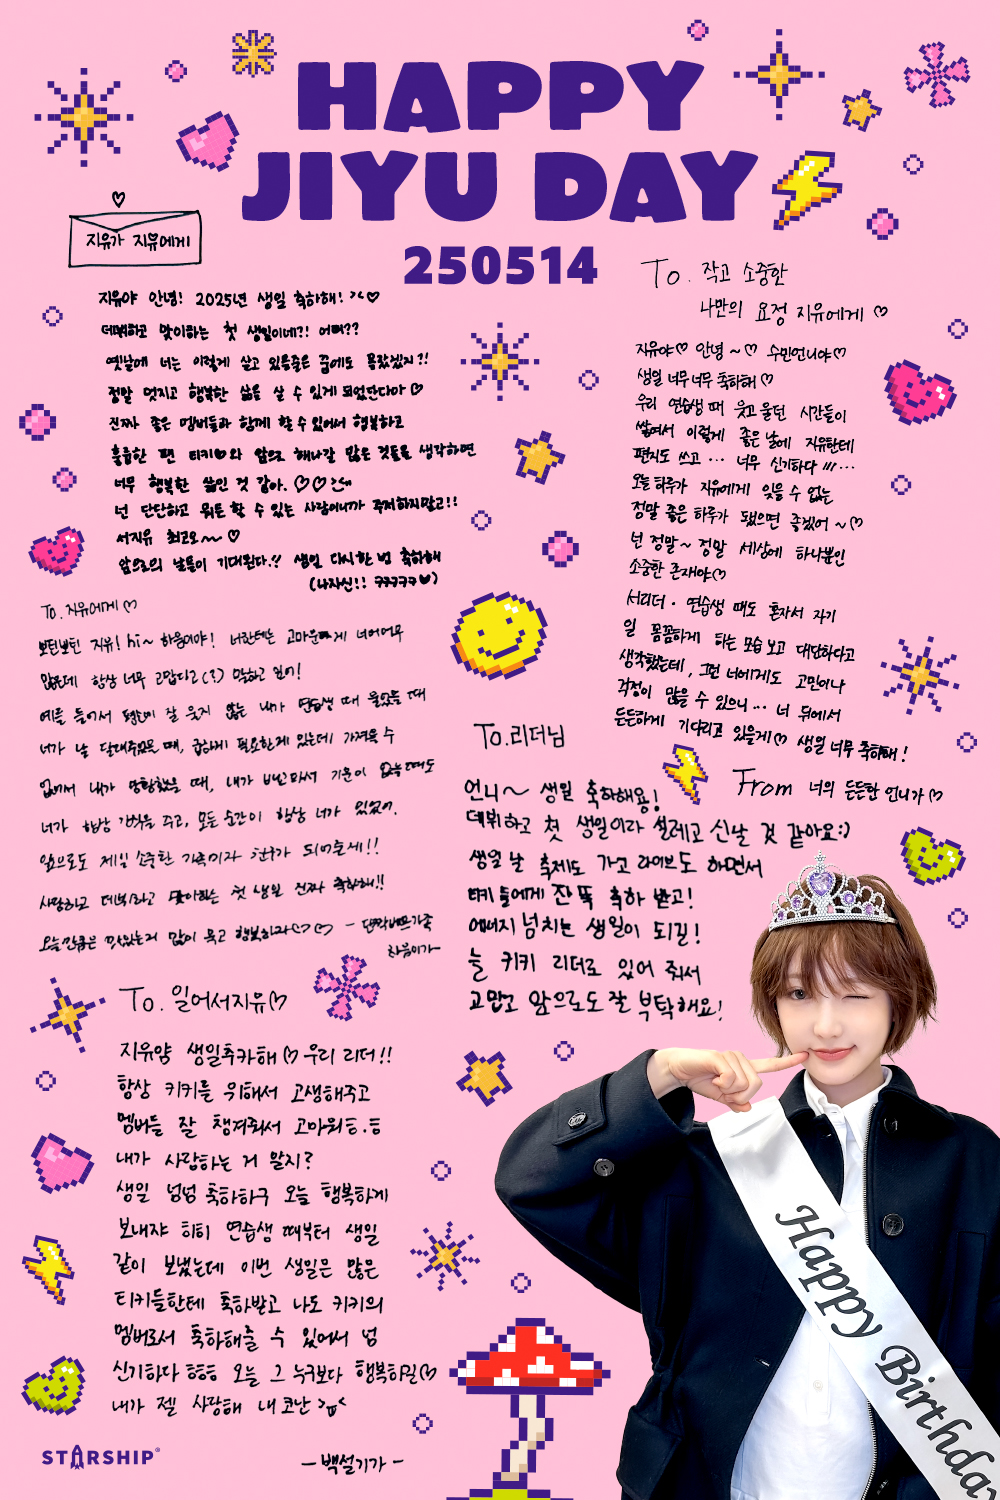 HAPPY
JIYU DAY
250514
지유가 지유에게
지유야 안녕! 2025년 생일 축하해! ><♡
데뷔하고 맞이하는 첫 생일이네?! 어때??
옛날에 너는 이렇게 살고 있을줄은 꿈에도 몰랐겠지?!
정말 멋지고 행복한 삶을 살 수 있게 되었단다아 ♡
진짜 좋은 멤버들과 함께 할 수 있어서 행복하고
훌륭한 팬 티키♡와 앞으로 해나갈 많은 것들을 생각하면
너무 행복한 삶인 것 같아. ♡♡
넌 단단하고 뭐든 할 수 있는 사람이니까 걱정하지말고!!
서지유 최고오~~ ♡
앞으로의 날들이 기대된다.!! 생일 다시한번 축하해
(나자신!! ㅋㅋㅋㅋㅋ♥)
To. 작고 소중한
나만의 요정 지유에게 ♡
지유야♡ 안녕 ~♡ 수민언니야♡
생일 너무너무 축하해 ♡
우리 연습생 때 웃고 울던 시간들이
쌓여서 이렇게 좋은 날에 지유한테
편지도 쓰고 ... 너무 신기하다 !!! ...
오늘 하루가 지유에게 잊을 수 없는
정말 좋은 하루가 됐으면 좋겠어 ~♡
넌 정말~ 정말 세상에 하나뿐인
소중한 존재야♡
서리더 · 연습생 때도 혼자서 자기
일 꼼꼼하게 하는 모습 보고 대단하다고
생각했는데, 그런 너에게도 고민이나
걱정이 많을 수 있으니 ... 너 뒤에서
든든하게 기다리고 있을게♡ 생일 너무 축하해!
From 너의 든든한 언니가 ♡
To. 지유에게 ♡
보틴보틴 지유! hi~ 하음이야! 너한테는 고마운게 너어어무
많은데 항상 너무 고맙다고(?) 말하고 있어!
예를 들어서 평소에 잘 웃지 않는 내가 연습생 때 울었을 때
너가 날 달래주었을 때, 급하게 필요한게 있는데 가져올 수
없어서 내가 당황했을 때, 내가 기운이 없을때도
너가 항상 기억을 주고, 모든 순간이 항상 너가 있었어.
앞으로도 제일 소중한 가족이자 친구가 되어줄게!!
사랑하고 데뷔하고 맞이하는 첫 생일 진짜 축하해!!
오늘만큼은 맛있는거 많이 먹고 행복하자♡♡ -
하음이가-
To.리더님
언니~ 생일 축하해용!
데뷔하고 첫 생일이라 설레고 신날 것 같아요:)
생일 날 축제도 가고 라이브도 하면서
티키들에게 잔뜩 축하 받고!
에너지 넘치는 생일이 되길!
늘 키키 리더로 있어 줘서
고맙고 앞으로도 잘 부탁해요!
To. 일어서지유♡
지유얌 생일추카해 ♡ 우리 리더!!
항상 키키를 위해서 고생해주고
멤버들 잘 챙겨줘서 고마워ㅌ.ㅌ
내가 사랑하는 거 알지?
생일 넘넘 축하하구 오늘 행복하게
보내쟈 히히 연습생 때부터 생일
같이 보냈는데 이번 생일은 많은
티키들한테 축하받고 나도 키키의
멤버로서 축하해줄 수 있어서 넘
신기하다 ㅎㅎㅎ 오늘 그 누구보다 행복하길♡
내가 젤 사랑해 내 코난 >ㅠ<
-백설기가-
STARSHIP®
Happy Birthday